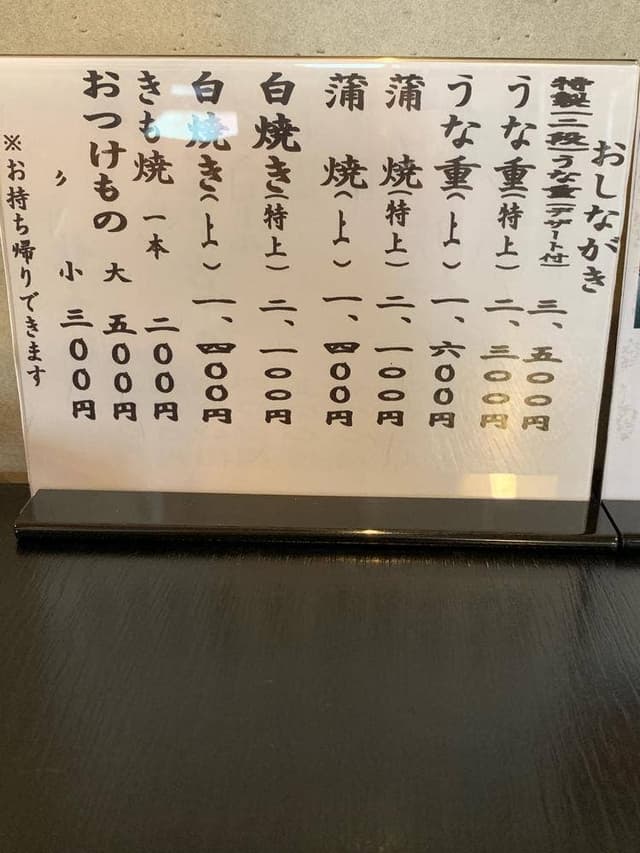 おしながき
特製(二段)うな重(デザート付) 三、五〇〇円
うな重(特上) 二、三〇〇円
うな重(上) 一、六〇〇円
蒲焼(特上) 二、一〇〇円
蒲焼(上) 一、四〇〇円
白焼き(特上) 二、一〇〇円
白焼き(上) 一、四〇〇円
きも焼 一本 二〇〇円
おつけもの 大 五〇〇円
〃 小 三〇〇円
※お持ち帰りできます